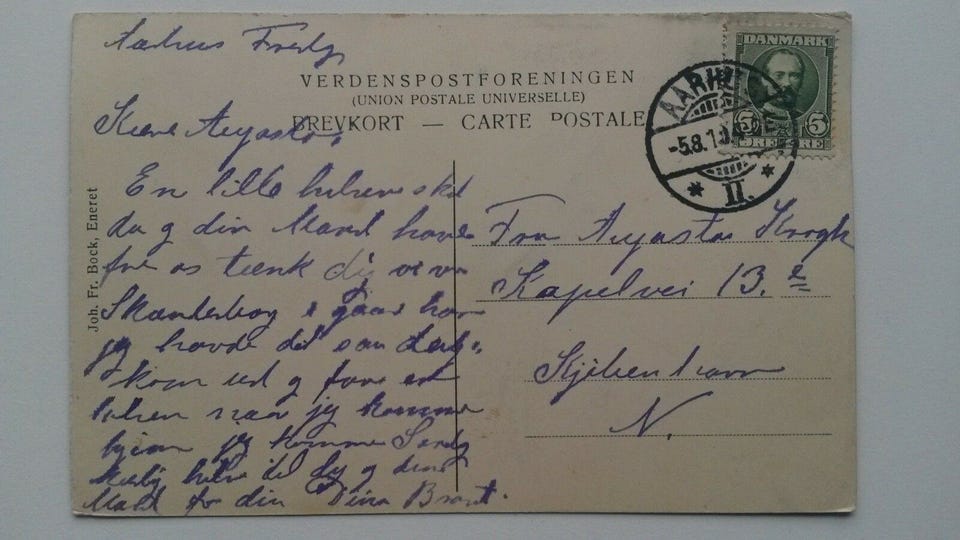 Aarhus Fredag
VERDENSPOSTFORENINGEN
(UNION POSTALE UNIVERSELLE)
BREVKORT — CARTE POSTALE
DANMARK
5 5
ØRE ØRE
AARHUS
-5.8.10
* II. *
Joh. Fr. Bock, Eneret
Kære Augusta.
En lille hilsen skal
du og din Mand have
fra os tænk dig vi var
Skanderborg i gaar hvor
jeg havde det saa
kom ud og faa en
naar jeg kommer
hjem jeg kommer
hilsen til dig og din
Mand fra din
Fru Augusta Krogh
Kapelvei 13. 2
Kjøbenhavn
N.